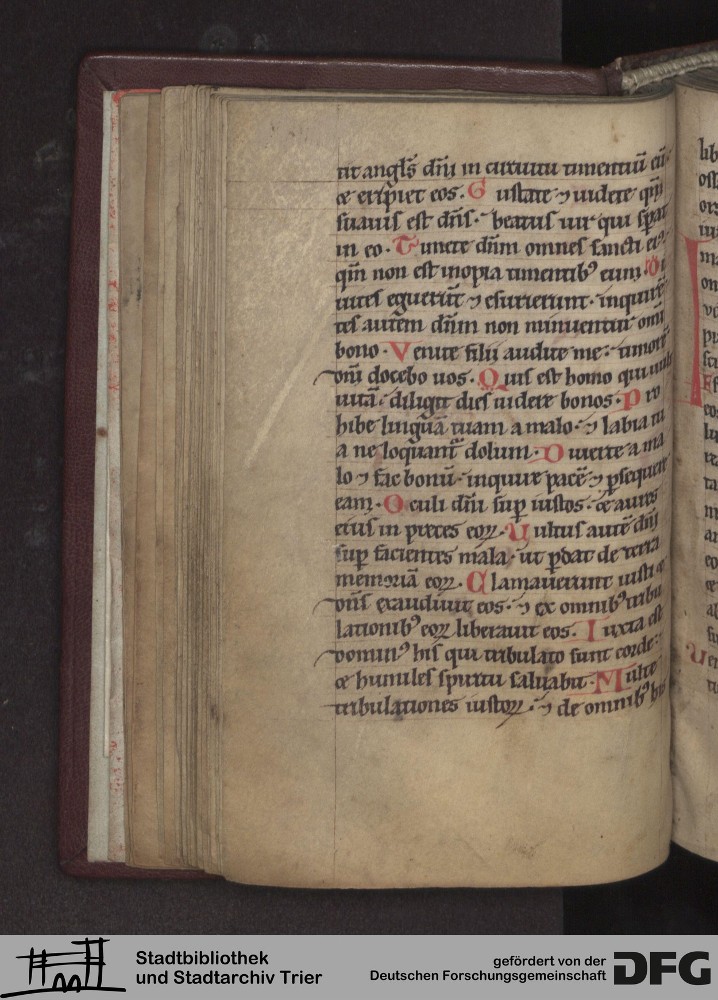 tit angls dni in circuitu timentiu eu
& eripiet eos. Gustate ⁊ uidete qm
suauis est dns. beatus uir qui sperat
in eo. Timete dnm omnes sancti ei᾽
qm non est inopia timentib᾽ eum. Di
uites eguerūt ⁊ esurierunt. inquiren
tes autem dnm non minuentur omi
bono. Venite filii audite me. timorē
dni docebo uos. Quis est homo qui uult
uitā. diligit dies uidere bonos. Pro
hibe linguā tuam a malo. ⁊ labia tu
a ne loquant dolum. Diuerte a ma
lo ⁊ fac bonū. inquire pacē ⁊ psequere
eam. Oculi dni sup iustos. & aures
eius in preces eoꝝ. Uultus autē dni
sup facientes mala. ut pdat de terra
memoriā eoꝝ. Clamauerunt iusti &
dns exaudiuit eos. ⁊ ex omnib᾽ tribu
lationib᾽ eoꝝ liberauit eos. Iuxta est
domin᾽ his qui tribulato sunt corde.
& humiles spiritu saluabit. Multe
tribulationes iustoꝝ. ⁊ de omnib᾽ his
Stadtbibliothek
und Stadtarchiv Trier
gefördert von der
Deutschen Forschungsgemeinschaft
DFG